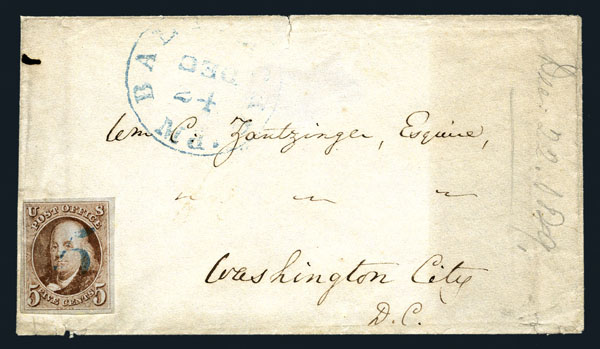 BA
DEC
24
Md.
Wm C. Zantzinger, Esquire,
" " "
Washington City
D.C.
U S
POST OFFICE
5
5 FIVE CENTS 5